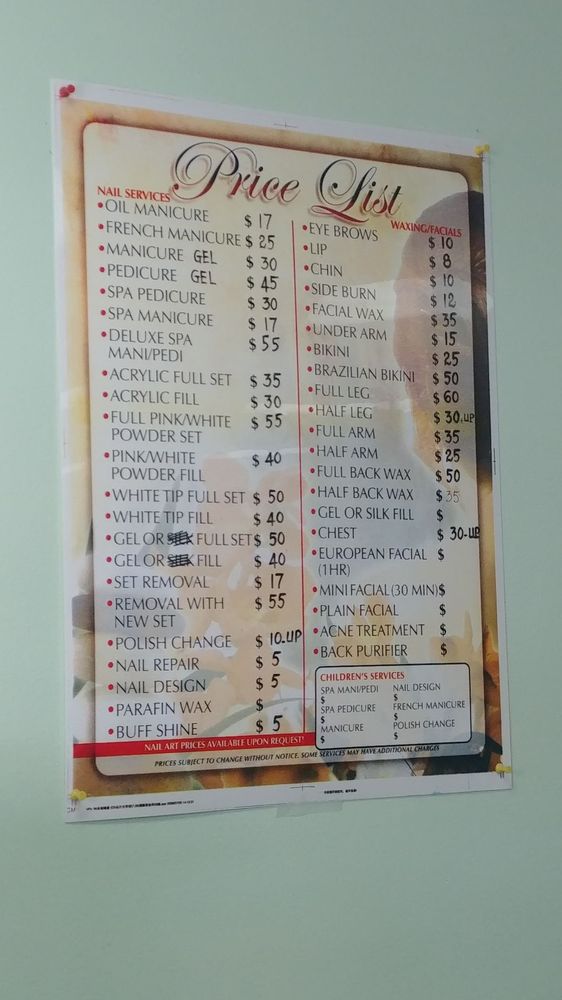 Price List
NAIL SERVICES
•OIL MANICURE $ 17
•FRENCH MANICURE $ 25
•MANICURE GEL $ 30
•PEDICURE GEL $ 45
•SPA PEDICURE $ 30
•SPA MANICURE $ 17
•DELUXE SPA $ 55
MANI/PEDI
•ACRYLIC FULL SET $ 35
•ACRYLIC FILL $ 30
•FULL PINK/WHITE $ 55
POWDER SET
•PINK/WHITE $ 40
POWDER FILL
•WHITE TIP FULL SET $ 50
•WHITE TIP FILL $ 40
•GEL OR SILK FULL SET $ 50
•GEL OR SILK FILL $ 40
•SET REMOVAL $ 17
•REMOVAL WITH $ 55
NEW SET
•POLISH CHANGE $ 10-UP
•NAIL REPAIR $ 5
•NAIL DESIGN $ 5
•PARAFIN WAX $
•BUFF SHINE $ 5
WAXING/FACIALS
•EYE BROWS $ 10
•LIP $ 8
•CHIN $ 10
•SIDE BURN $ 12
•FACIAL WAX $ 35
•UNDER ARM $ 15
•BIKINI $ 25
•BRAZILIAN BIKINI $ 50
•FULL LEG $ 60
•HALF LEG $ 30.UP
•FULL ARM $ 35
•HALF ARM $ 25
•FULL BACK WAX $ 50
•HALF BACK WAX $ 35
•GEL OR SILK FILL $
•CHEST $ 30-UP
•EUROPEAN FACIAL $
(1HR)
•MINI FACIAL (30 MIN) $
•PLAIN FACIAL $
•ACNE TREATMENT $
•BACK PURIFIER $
CHILDREN'S SERVICES
SPA MANI/PEDI NAIL DESIGN
$ $
SPA PEDICURE FRENCH MANICURE
$ $
MANICURE POLISH CHANGE
$ $
NAIL ART PRICES AVAILABLE UPON REQUEST!
PRICES SUBJECT TO CHANGE WITHOUT NOTICE. SOME SERVICES MAY HAVE ADDITIONAL CHARGES